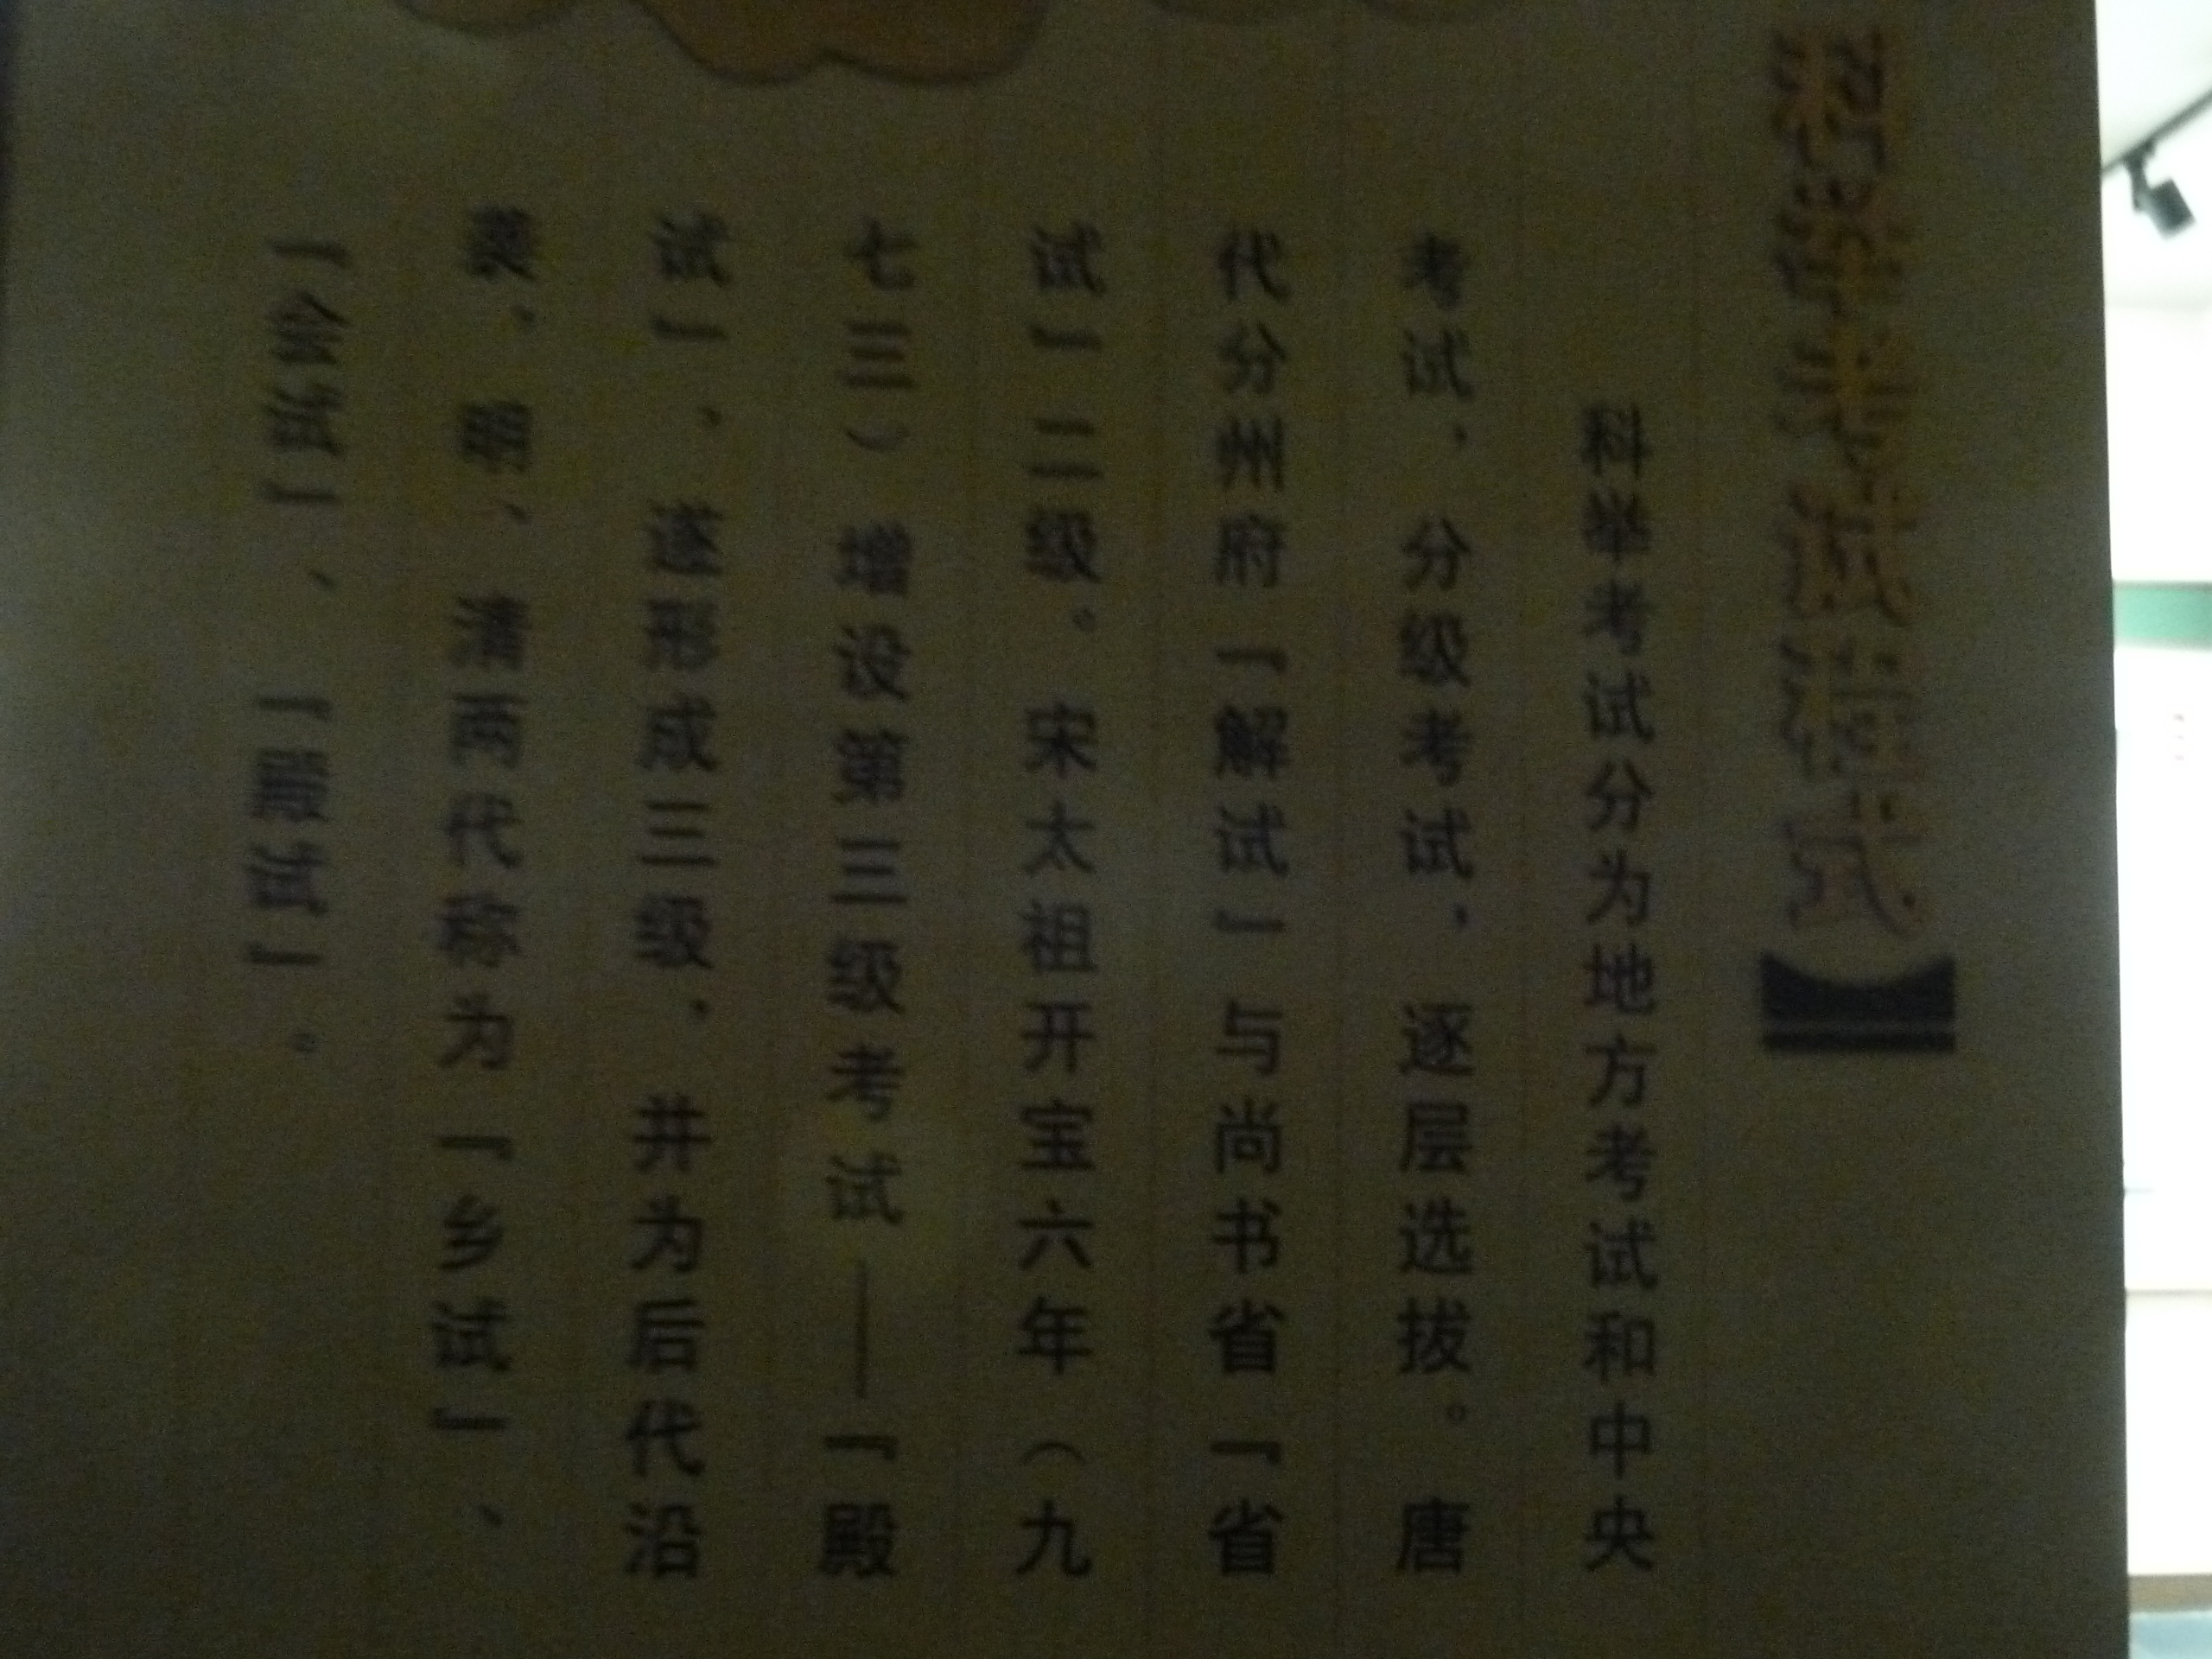 科举考试程式
科举考试分为地方考试和中央
考试，分级考试，逐层选拔。唐
代分州府『解试』与尚书省『省
试』二级。宋太祖开宝六年（九
七三）增设第三级考试——『殿
试』，遂形成三级，并为后代沿
袭。明、清两代称为『乡试』、
『会试』、『殿试』。